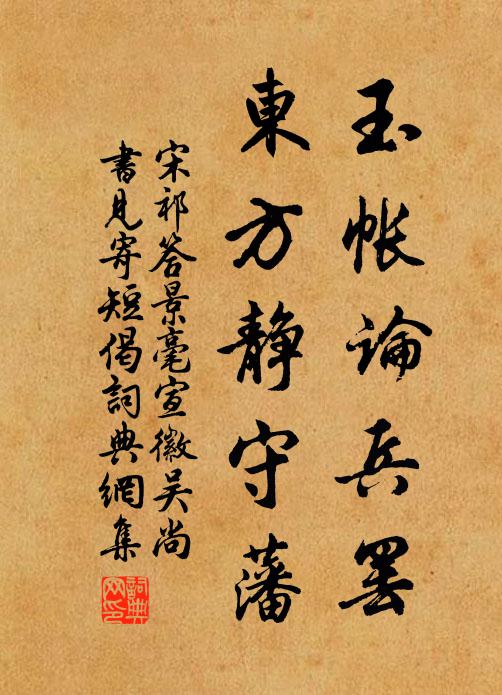 玉帐論兵罷
東方静守藩
宋祁答景毫宣徽吴尚
書見寄短偈詞典網集
詞典
网印